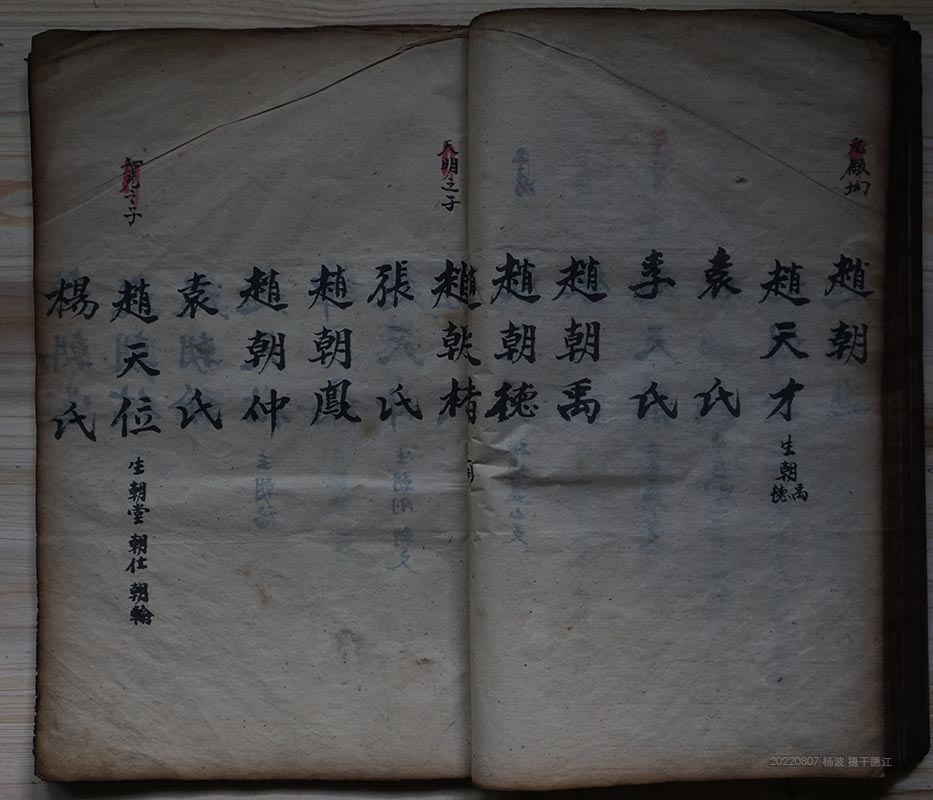 廠坳
趙朝
趙天才 生朝禹 德
袁氏
李天氏
趙朝禹
趙朝德
天明之子
趙朝楷
張天氏
趙朝鳳
趙朝仲
袁氏
之子
趙天位 生朝堂 朝仕 朝翰
楊氏
20220807 杨波 摄于德江